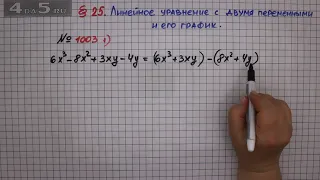 § 25. Линейное уравнение с двумя переменными
и его график.
№ 1003 1)
6x³-8x²+3xy-4y = (6x³+3xy)-(8x²+4y)